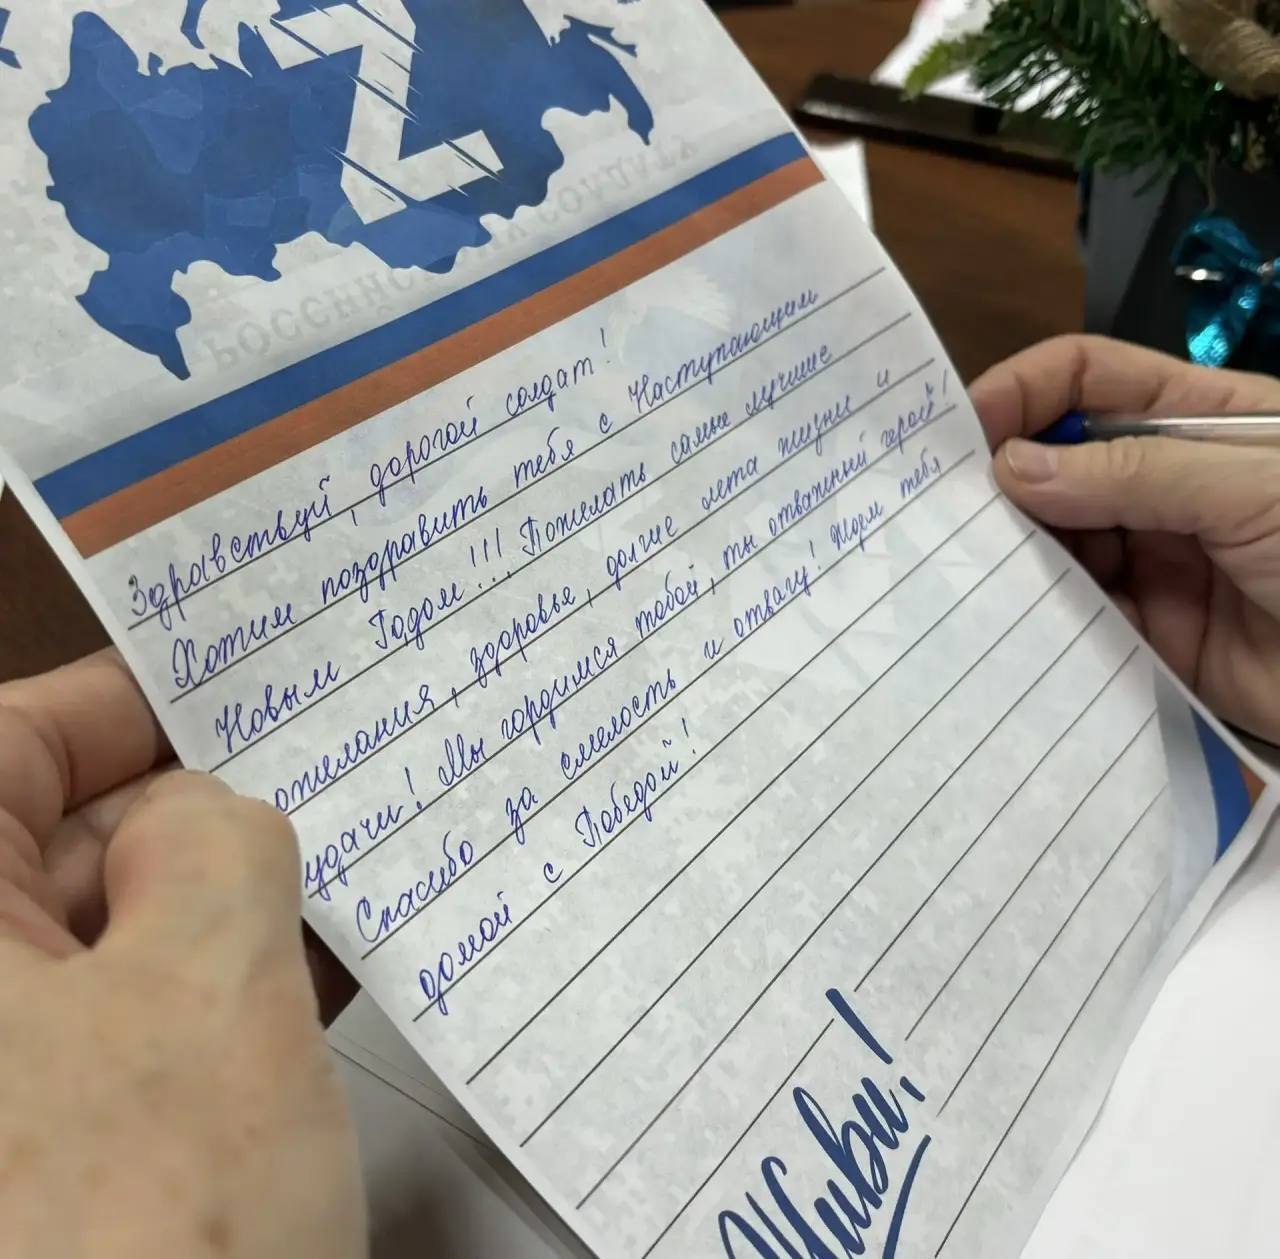 Z
РОССИЙСКОМУ СОЛДАТУ
Здравствуй, дорогой солдат!
Хотим поздравить тебя с Наступающим
Новым Годом!!! Пожелать самые лучшие
пожелания, здоровья, долгие лета жизни и
удачи! Мы гордимся тобой, ты отважный герой!
Спасибо за смелость и отвагу! Ждем тебя
домой с Победой!
Живи!